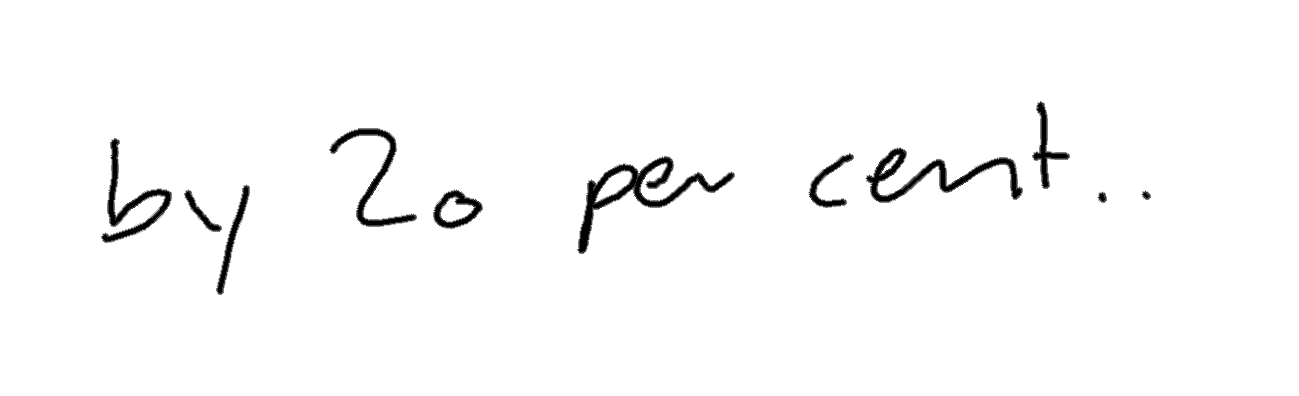 by 20 per cent..